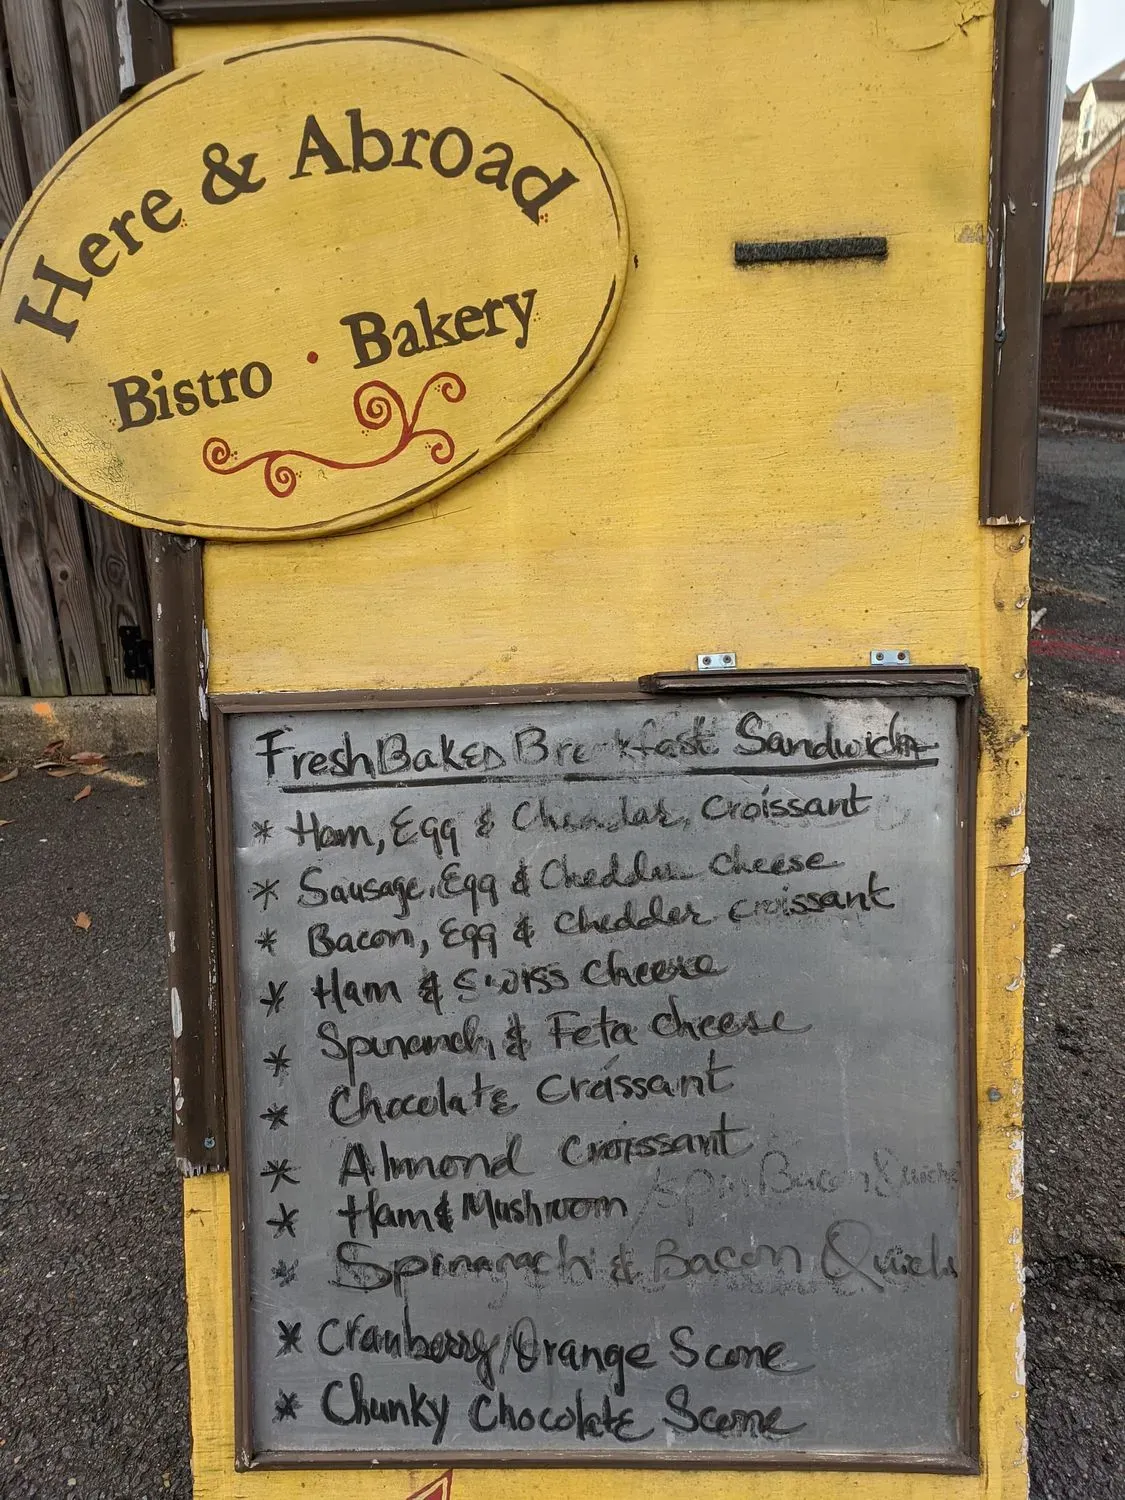 Here & Abroad
Bistro · Bakery
Fresh Baked Breakfast Sandwich
* Ham, Egg & Cheddar, croissant
* Sausage, Egg & Cheddar cheese
* Bacon, Egg & Chedder croissant
* Ham & Swiss cheese
* Spinanch & Feta cheese
* Chocolate Croissant
* Almond croissant
* Ham & Mushroom
* Spinanach & Bacon Quich
* Cranberry/Orange Scone
* Chunky Chocolate Scone